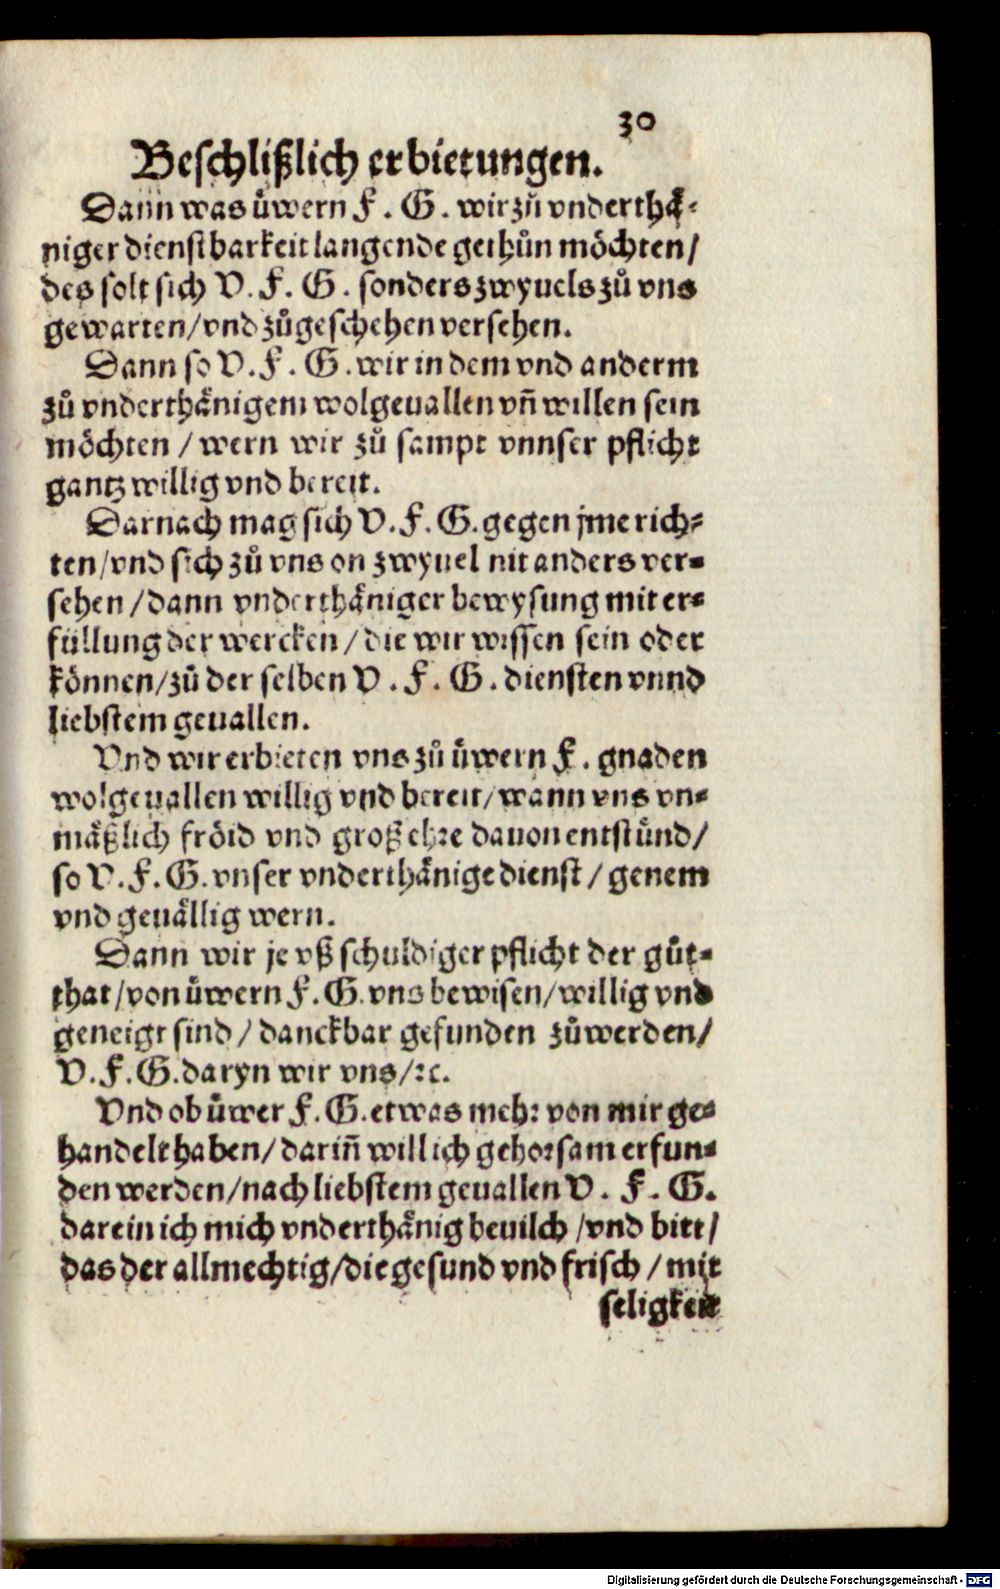 30
Beschlißlich erbietungen.
Dann was üwern F. G. wir zů vnderthä-
niger dienstbarkeit langende gethůn möchten/
des solt sich V. F. G. sonders zwyuels zů vns
gewarten/vnd zůgeschehen versehen.
Dann so V. F. G. wir in dem vnd anderm
zů vnderthänigem wolgeuallen vñ willen sein
möchten / wern wir zů sampt vnnser pflicht
gantz willig vnd bereit.
Darnach mag sich V. F. G. gegen jme rich-
ten/vnd sich zů vns on zwyuel nit anders ver-
sehen/dann vnderthäniger bewysung mit er-
füllung der wercken/die wir wissen sein oder
können/zů der selben V. F. G. diensten vnnd
liebstem geuallen.
Vnd wir erbieten vns zů üwern F. gnaden
wolgeuallen willig vnd bereit/wann vns vn-
mäßlich fröid vnd groß ehre dauon entstünd/
so V. F. G. vnser vnderthänige dienst / genem
vnd geuällig wern.
Dann wir je vß schuldiger pflicht der gůt-
that/von üwern F. G. vns bewisen/willig vnd
geneigt sind/danckbar gefunden zůwerden/
V. F. G. daryn wir vns/ꝛc.
Vnd ob üwer F. G. etwas mehr von mir ge-
handelt haben/dariñ will ich gehorsam erfun-
den werden/nach liebstem geuallen V. F. G.
darein ich mich vnderthänig beuilch /vnd bitt/
das der allmechtig/die gesund vnd frisch / mit
seligkeit
Digitalisierung gefördert durch die Deutsche Forschungsgemeinschaft - DFG